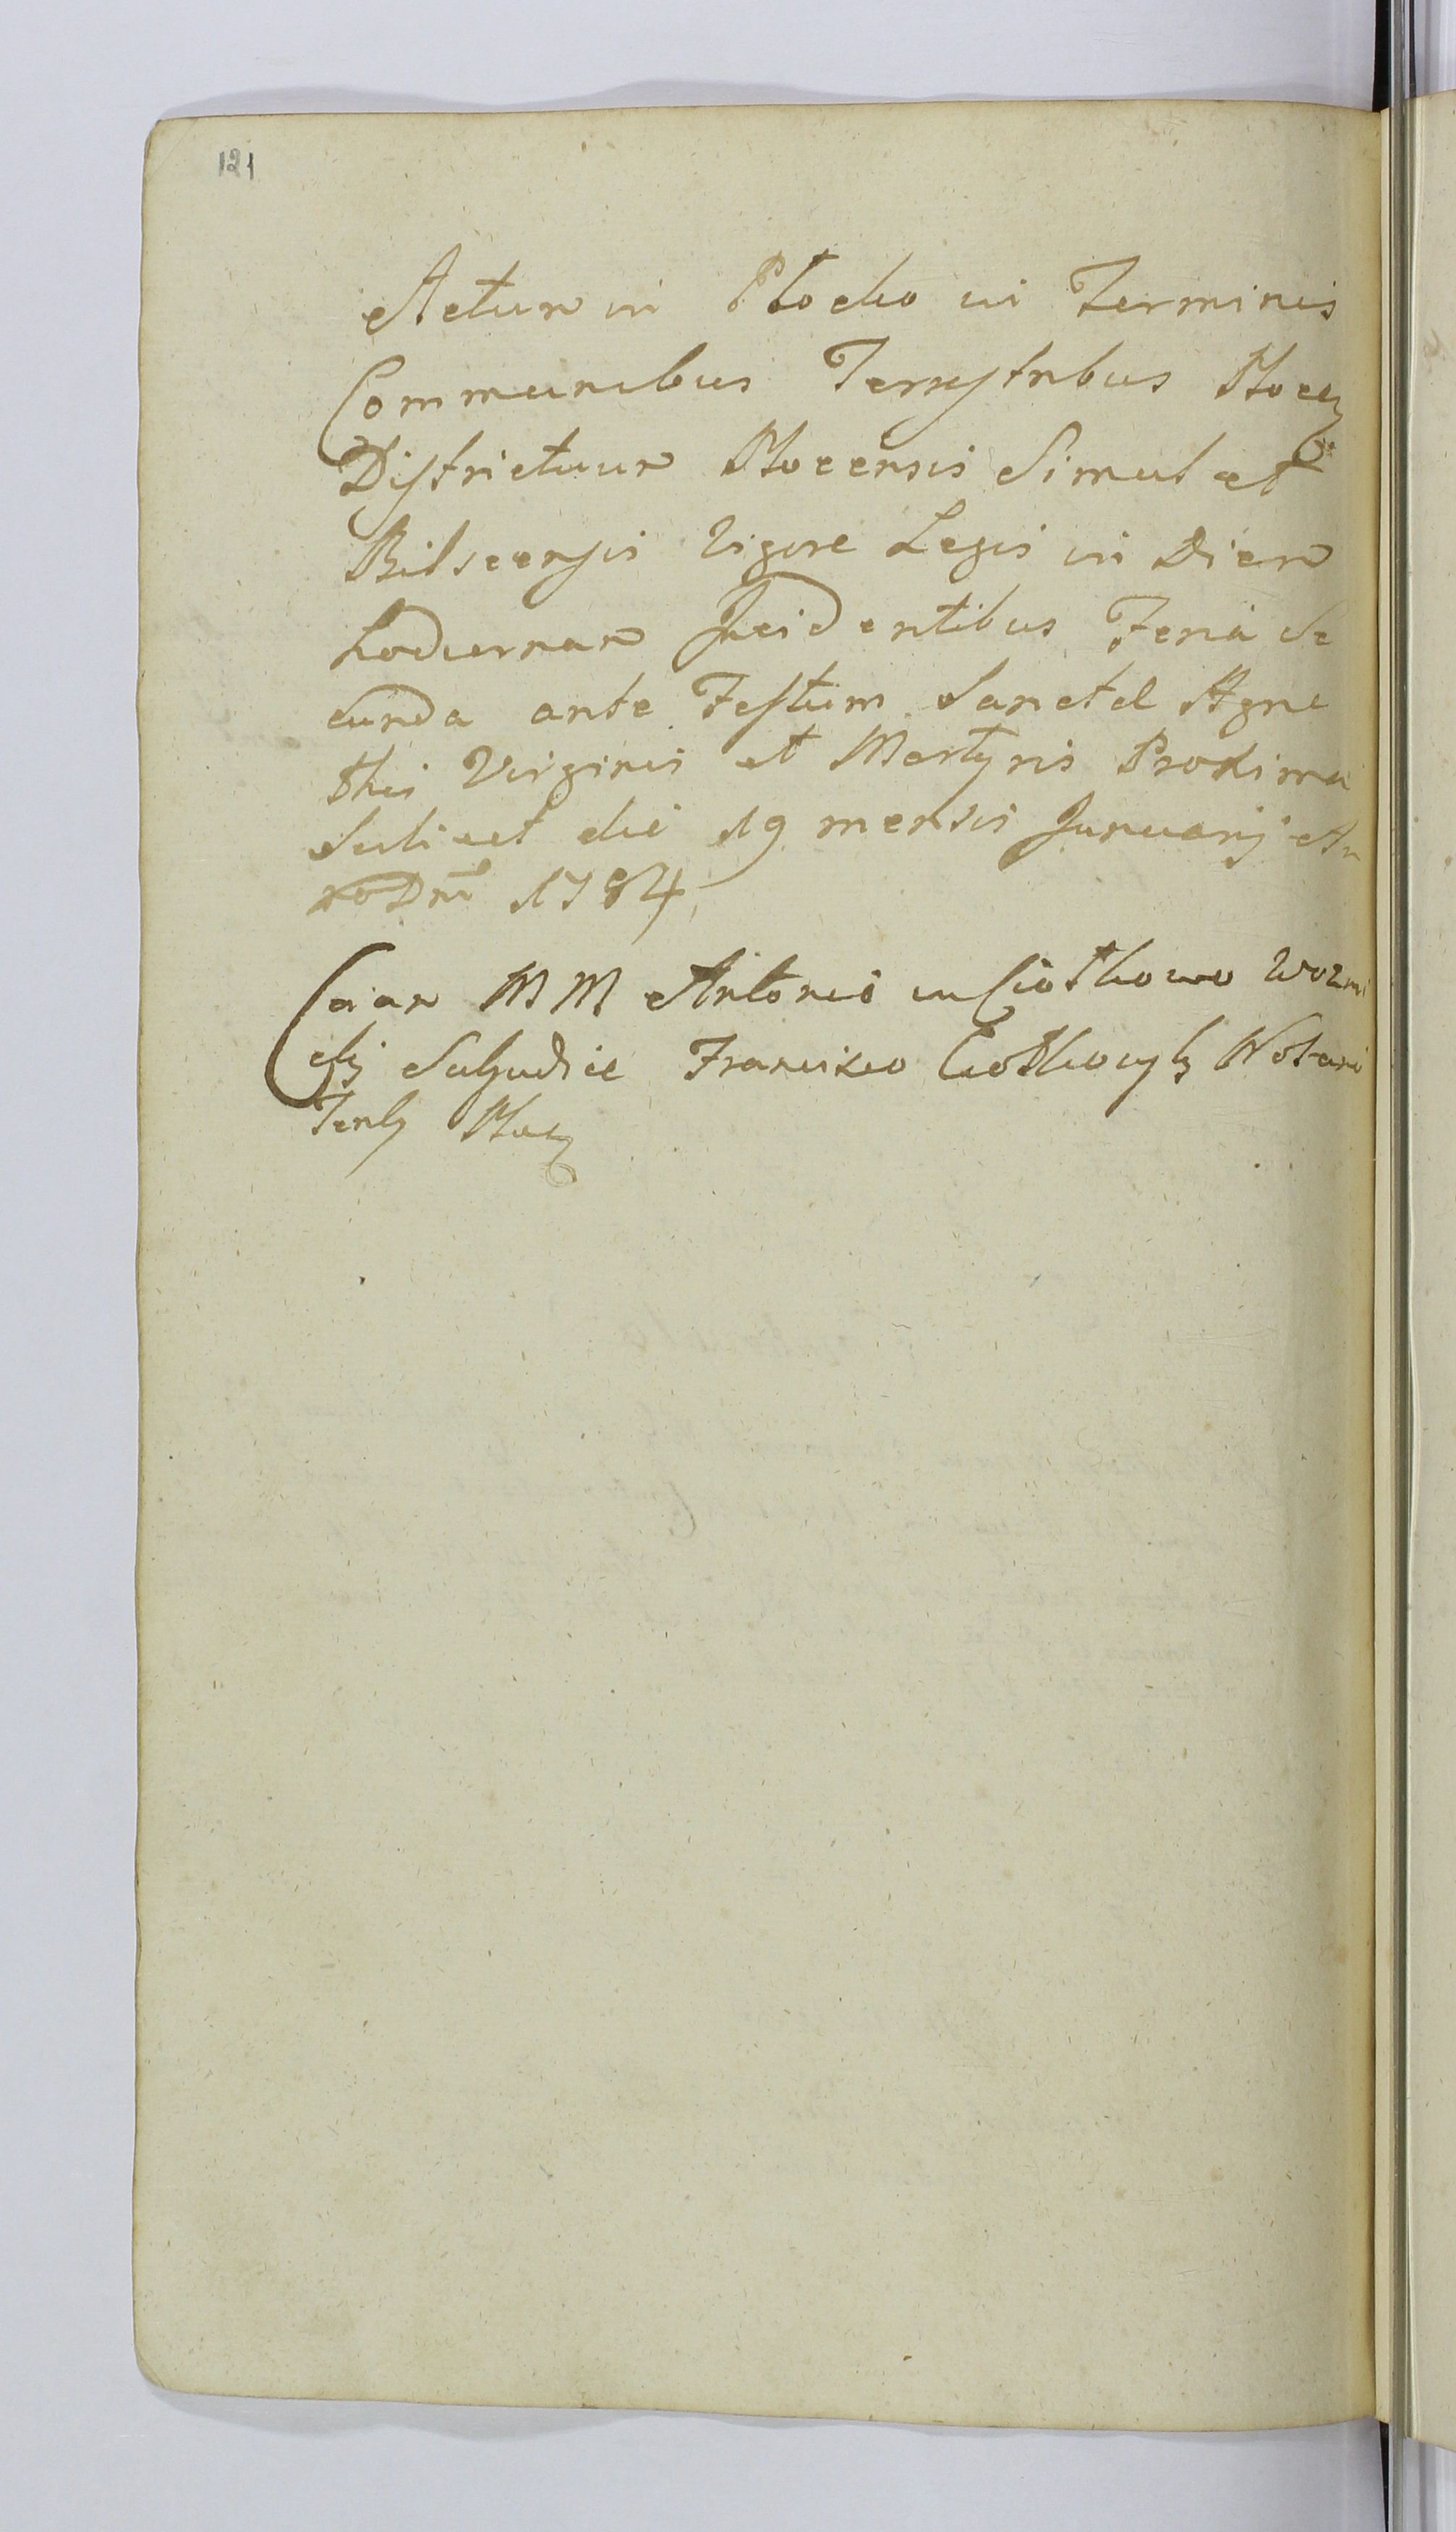 121
Actum in Plocko in Terminis
Communibus Terrestribus Plocen
Districtuum Plocensis Simul et
Bilscensis Vigore Legis in Diem
hodiernam Incidentibus Feria Se
cunda ante Festum Sanctæ Agne
this Virginis et Martyris Proxima
Scilicet die 19 mensis Januarij An
no Dni 1784
Coram MM Antonio in Ciołkowo
Subjudice Francisco Notario
Terris Plocen